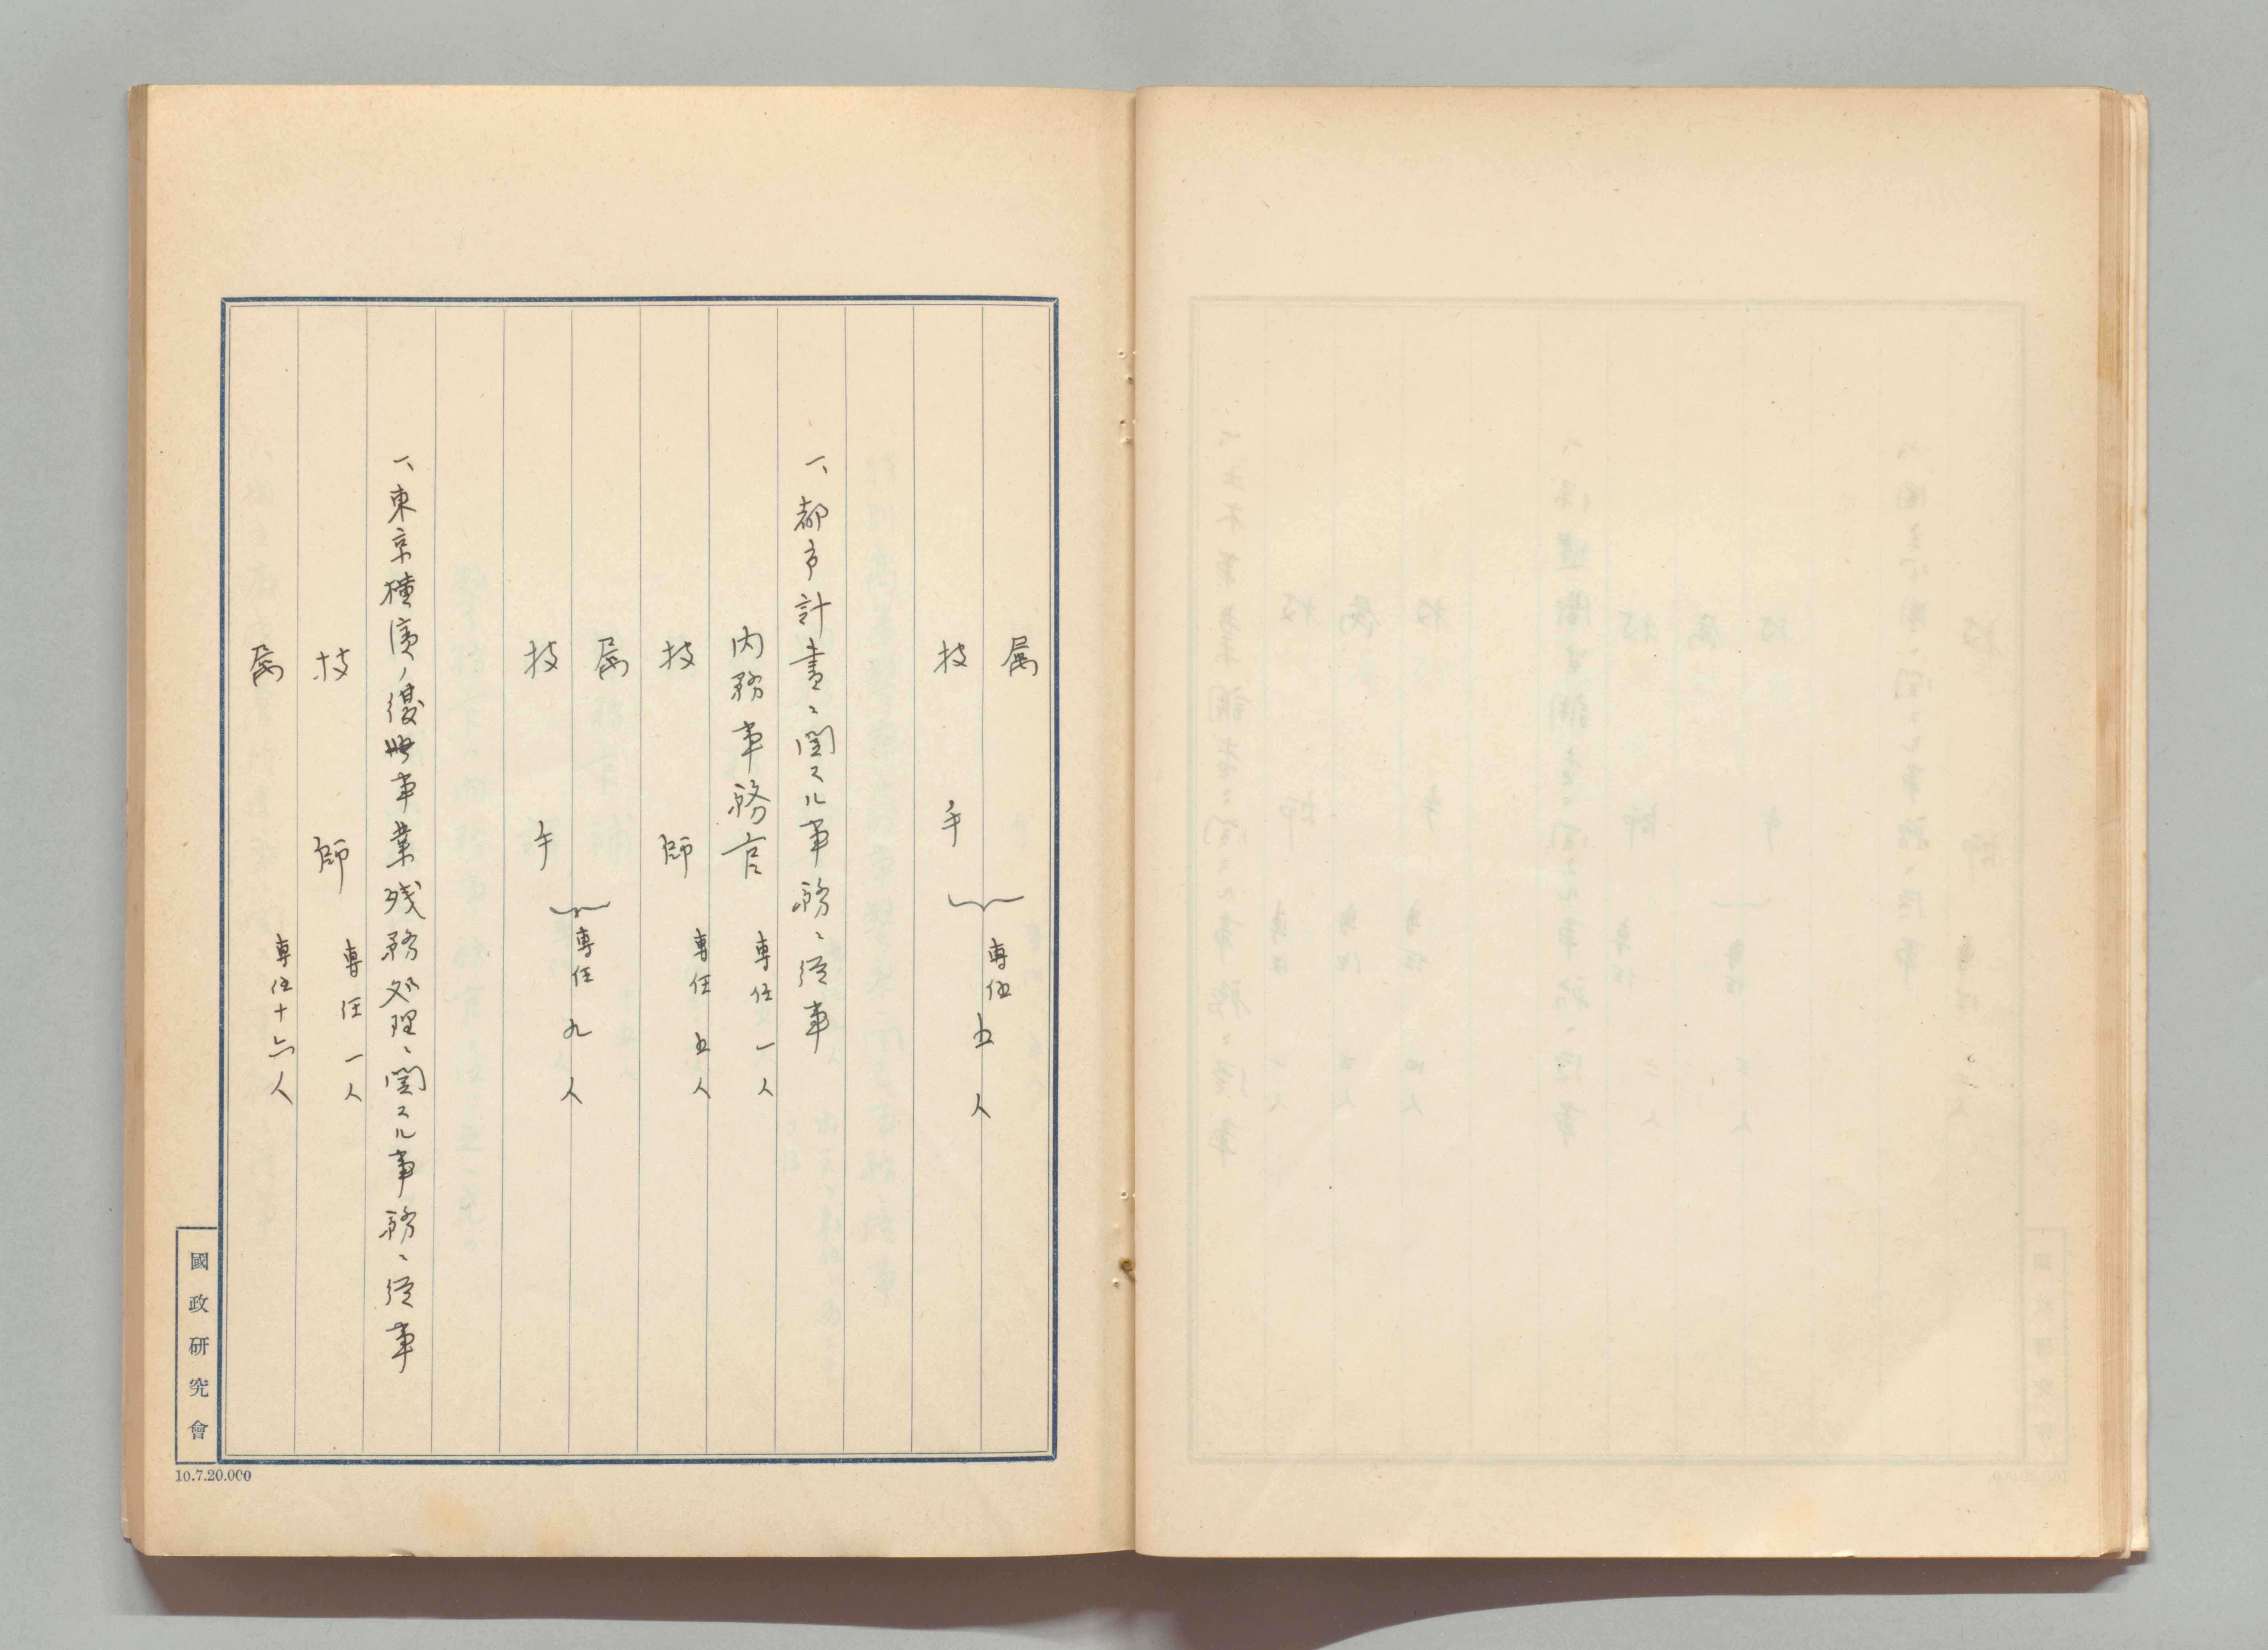 属
技手 専任五人
一、都市計畫ニ関スル事務ニ従事
内務事務官 専任一人
技師 専任五人
属
技手 専任九人
一、東京横濱ノ復興事業残務処理ニ関スル事務ニ従事
技師 専任一人
属 専任十六人
國政研究會
10.7.20.000